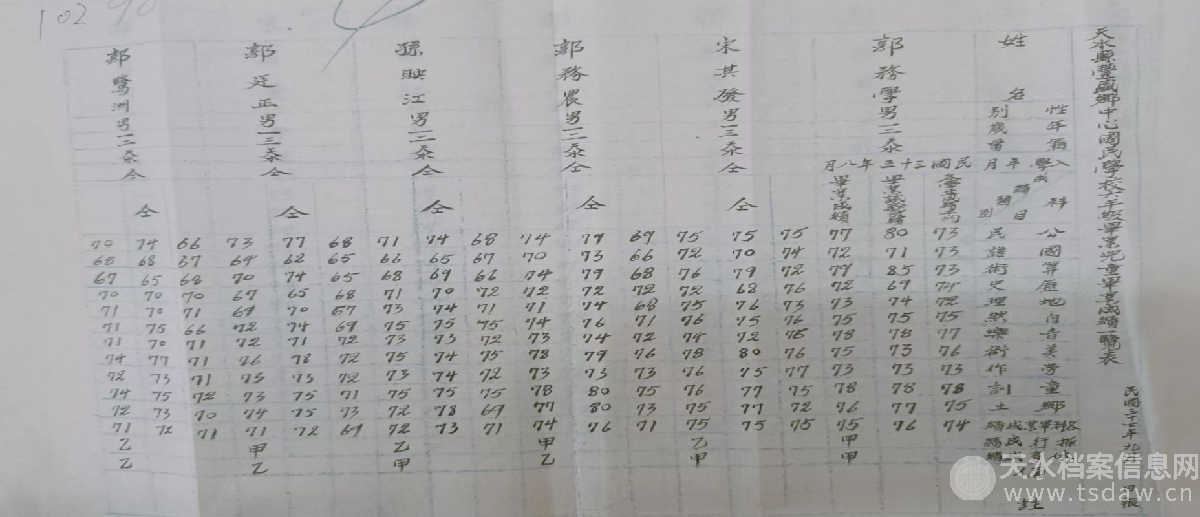 天水縣豐盛鄉中心國民學校六年級畢業兒童畢業成績一覽表
民國三十七年
姓名
性別
年歲
籍貫
入學年月
科目
成績
類別
公民
國語
算術
歷史
地理
自然
音樂
美術
勞作
童訓
鄉土
郭務學 男 一三 泰 民國三十五年八月
各學期成績平均 73 73 73 71 72 75 77 76 73 78 75 74
畢業試驗成績 80 71 85 69 74 75 78 73 73 78 77 76
畢業成績 77 72 79 72 73 75 78 75 73 78 76 75 甲 甲
宋其發 男 一三 泰 仝 仝
75 74 72 76 73 76 76 76 77 75 72 75
75 70 79 68 76 75 72 80 75 77 77 75
75 72 76 72 75 76 74 78 76 76 75 75 乙 甲
郭務農 男 一三 泰 仝 仝
69 66 68 72 68 71 72 76 73 75 73 71
79 73 79 72 74 76 74 79 73 80 80 76
74 70 74 72 71 74 73 78 73 78 77 74 甲 乙
孫映江 男 一三 泰 仝 仝
68 67 66 72 71 75 72 75 72 75 69 71
74 65 69 70 74 75 73 74 74 75 78 73
71 66 68 71 73 75 73 75 73 75 72 72 乙 甲
郭廷正 男 一三 泰 仝 仝
68 65 65 68 67 69 72 72 72 71 73 69
77 62 74 65 70 74 71 78 75 75 75 72
73 64 70 67 69 72 72 76 73 73 74 71 甲 乙
郭鷺洲 男 一三 泰 仝 仝
66 67 68 70 71 66 71 71 71 72 70 71
74 68 65 70 70 75 70 77 73 75 73 72
70 68 67 70 71 71 71 74 72 74 72 71 乙 乙
102
天水档案信息网
www.tsdaw.cn